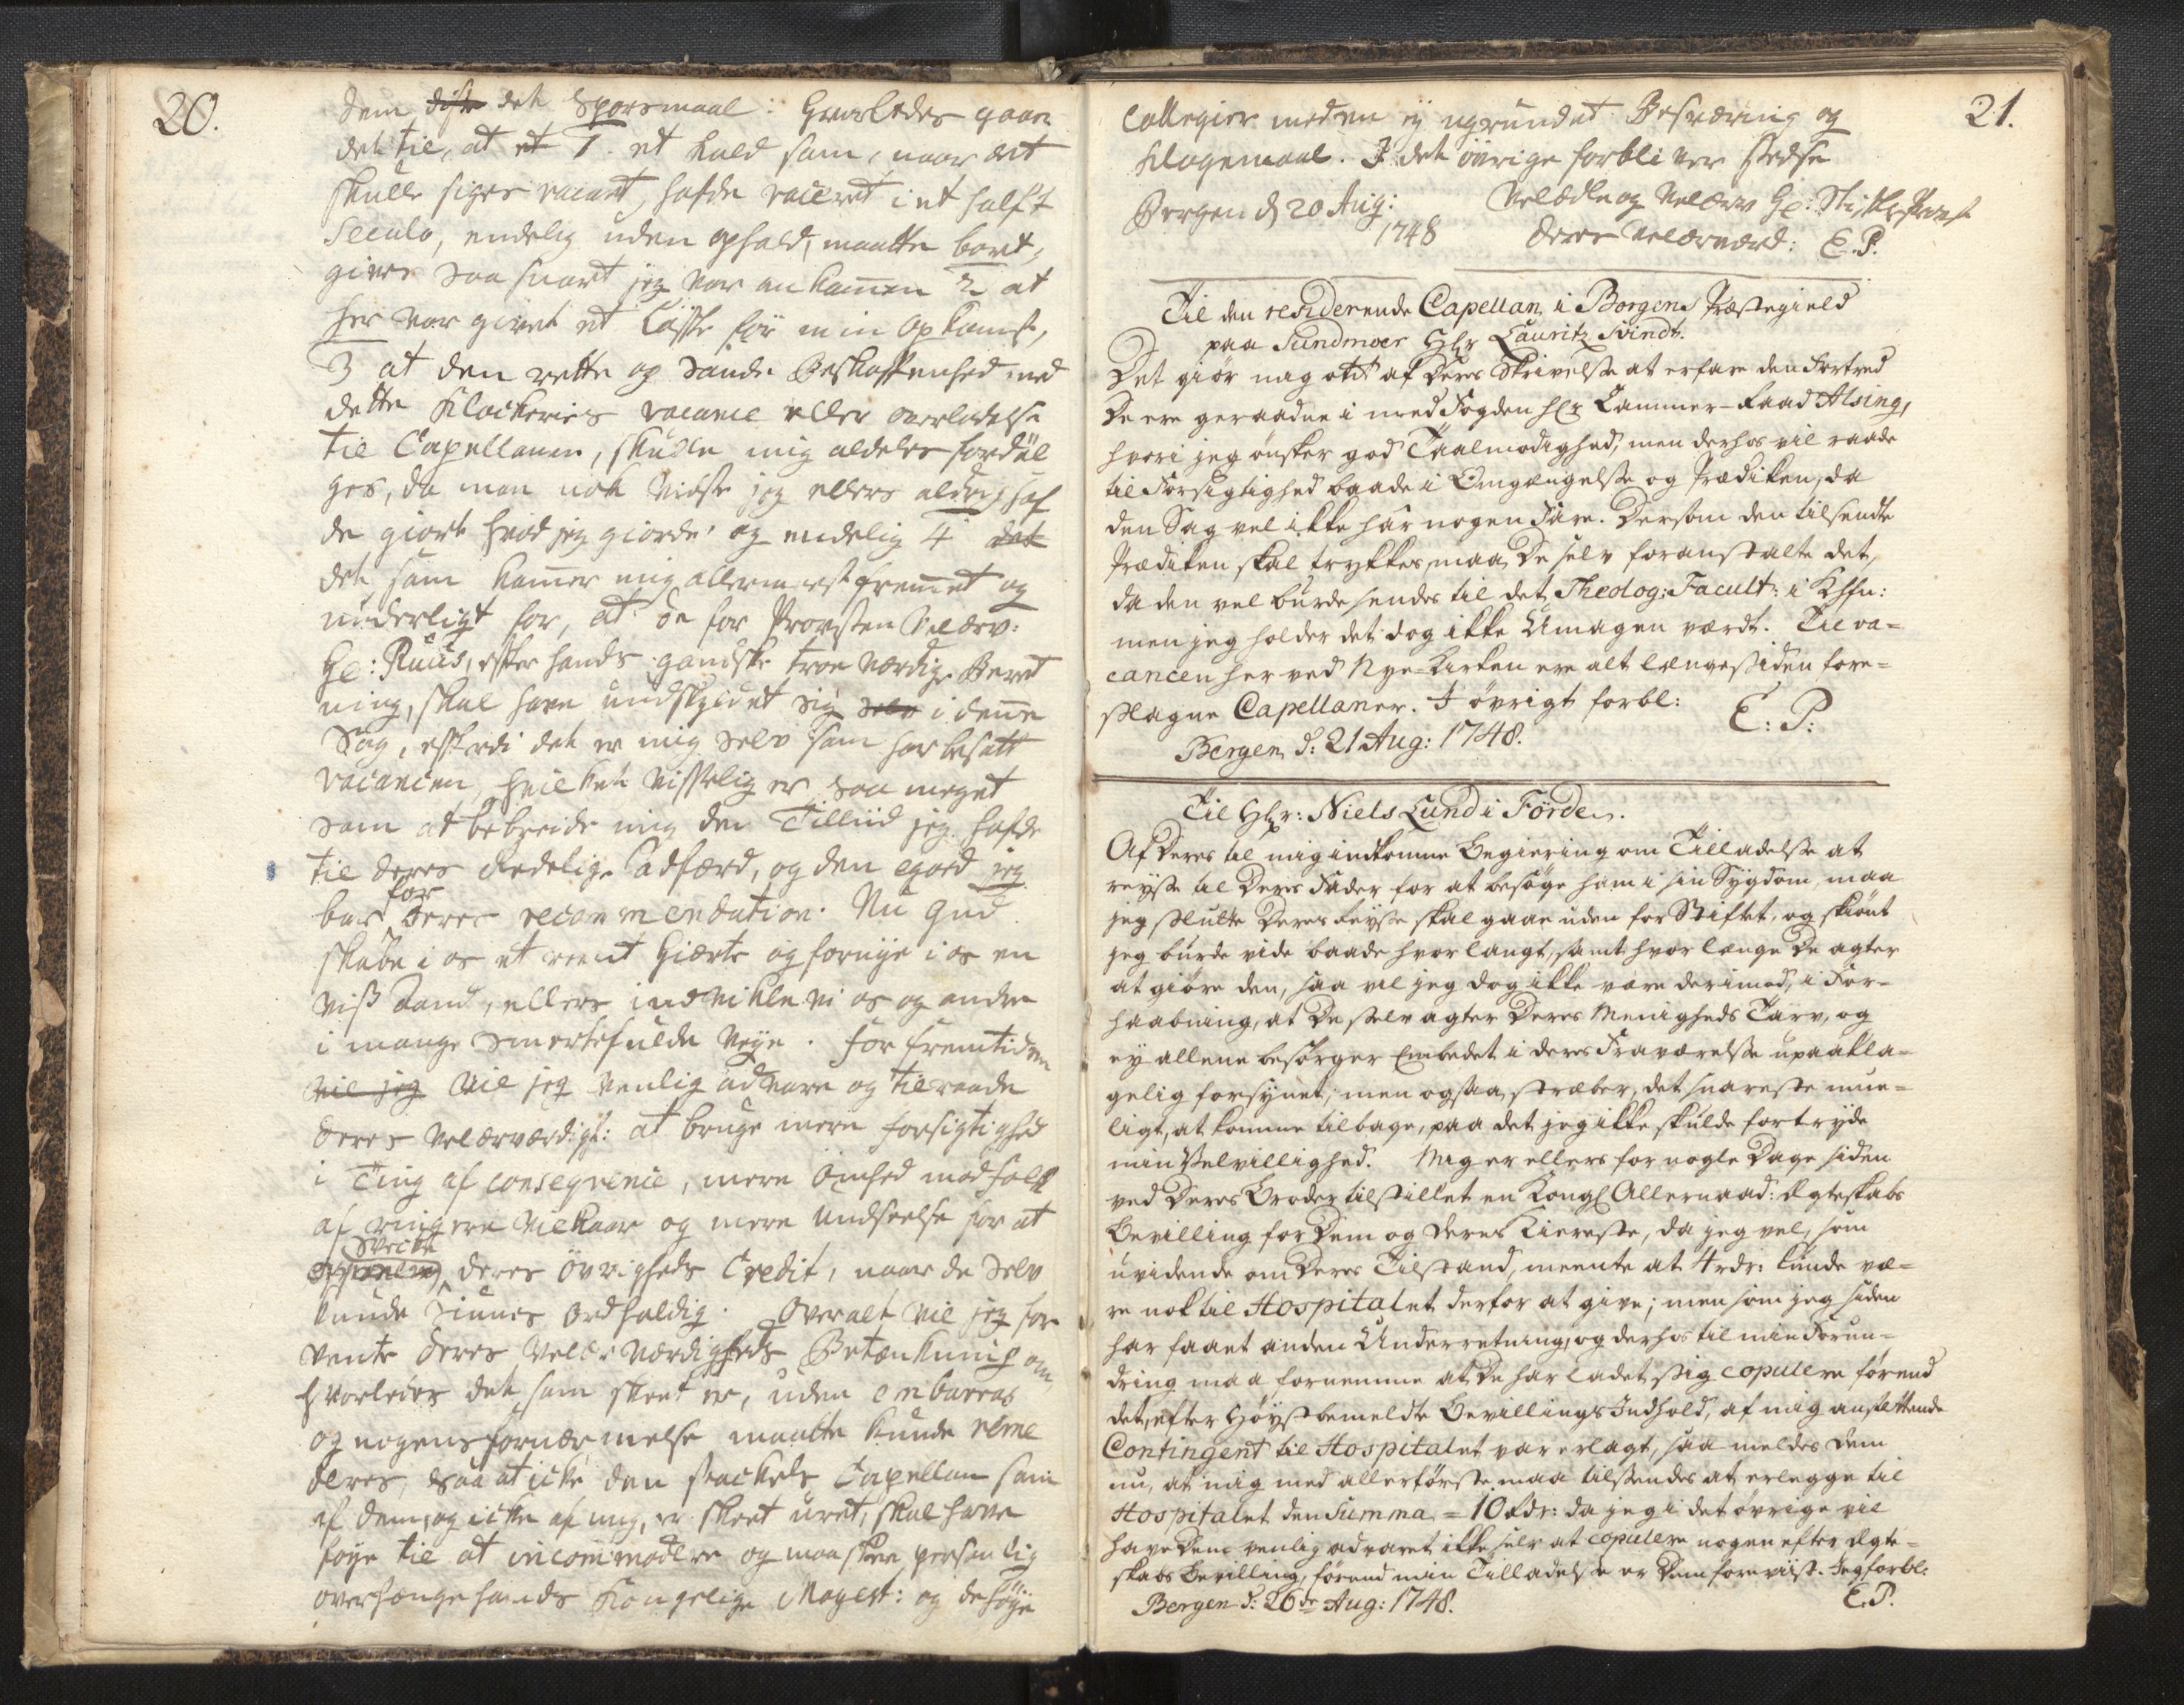 20.
dem det Sporsmaal: Hvorledes gaaer
det til, at et 1. et Kald som, naar det
skulle siges vacant, hafde vaceret i et halft
Seculo, endelig uden ophold, maatte bort,
gives saa snart jeg var ankommen 2 at
her var givet et Løffte før min Opkomst,
3 at den rette og sande Beskaffenhed med
dette Klockeries vacance eller overladelse
til Capellanen, skulle mig aldeles fordul
ges, da man nok vidste jeg ellers aldrig haf
de giort hvad jeg giorde, og endelig 4 det
det som kommer mig allermeest fremmet og
underligt for, at De for Provsten Velærv:
Hr: Ruus, efter hands gandske troeværdige Beret
ning, skal have undskyldt sig selv i denne
Sag, efterdi det er mig selv som har besatt
vacancen, hvilket visselig er saa meget
som at bebreide mig den Tilliid jeg hafde
til deres Redelige Adfærd, og den egard jeg
bar for Deres recommendation. Nu Gud
skabe i os et reent Hierte og fornye i os en
viss Aand, ellers indvikle vi os og andre
i mange smertefulde Veye. For Fremtiden
vil jeg vil jeg venlig advare og tilraade
Deres Velærværdigh: at bruge mere forsigtighed
i Ting af conseqvence, mere Ømhed mod folk
af ringere Vilkaar og mere Undseelse for at
svecke deres øvrigheds Credit, naar de selv
kunde siunes ordholdig. Overalt vil jeg for
vente Deres Velærværdigheds Betænkning om,
hvorledes det som skeet er, uden embarras
og nogens fornærmelse maatte kunde reme
deres, saa at icke den stackels Capellan som
af dem, og icke af mig, er skeet uret, skal have
føye til at incommodere og maa skee personlig
overhænge hands Kongelige Mayest: og de høye
21.
Collegier med en ey ugrundet Besværing og
Klagemaal. I det øvrige forbliver stedse
Bergen d 20 Aug: Velædle og Velærv Hr: Stiftsprovst
1748 Deres Velærværd: E. P.
Til den residerende Capellan i Borgens Præstegield
paa Sundmoer Hlr Lauritz Svindt.
Det giør mig ont af Deres Skrivelse at erfare den Fortred
De ere geraadne i med Fogden Hlr Cammer-Raad Alsing,
hvori jeg ønsker god Taalmodighed, men derhos vil raade
til Forsigtighed baade i Omgængelse og Prædiken, da
den Sag vel ikke har nogen Fare. Dersom den tilsendte
Prædiken skal trykkes, maa De selv foranstalte det,
da den vel burde sendes til det Theolog: Facult: i Khfn:
men jeg holder det dog ikke Umagen værdt. Til va=
cancen her ved Nye-Kirken ere alt længesiden fore=
slagne Capellaner. I øvrigt forbl:
E: P:
Bergen d: 21 Aug: 1748.
Til Hlr: Niels Lund i Förden.
Af Deres til mig indkomne Begiering om Tilladelse at
reyse til Deres Fader for at besøge ham i sin Sygdom, maa
jeg slutte Deres Reyse skal gaae uden for Stiftet, og skiønt
jeg burde vide baade hvor langt, samt hvor længe De agter
at giøre den, saa vil jeg dog ikke være derimod, i For=
haabning, at De selv agter Deres Menigheds Tarv, og
ey allene besørger Embedet i deres Fraværelse upaakla=
gelig forsynet, men ogsaa stræber, det snareste mue=
ligt, at komme tilbage, paa det jeg ikke skulde fortryde
min Velvillighed. Mig er ellers for nogle Dage siden
ved Deres Broder tilstillet en Kongl Allernaad: Ægteskabs
Bevilling for Dem og Deres Kiereste, da jeg vel, som
uvidende om Deres Tilstand, meente at 4 rdr: kunde væ=
re nok til Hospitalet derfor at give; men som jeg siden
har faaet anden Underretning, og derhos til min Forun=
dring maa fornemme at De har ladet sig copulere førend
det, efter Høystbemeldte Bevillings Indhold, af mig ansættende
Contingent til Hospitalet var erlagt, saa meldes Dem
nu, at mig med allerførste maa tilsendes at erlegge til
Hospitalet den Summa = 10 Rdr: da jeg i det øvrige vil
have Dem venlig advaret ikke selv at copulere nogen efter Ægte=
skabs Bevilling, førend min Tilladelse er Dem foreviist. Jeg forbl:
Bergen d: 26de Aug: 1748. E. P.